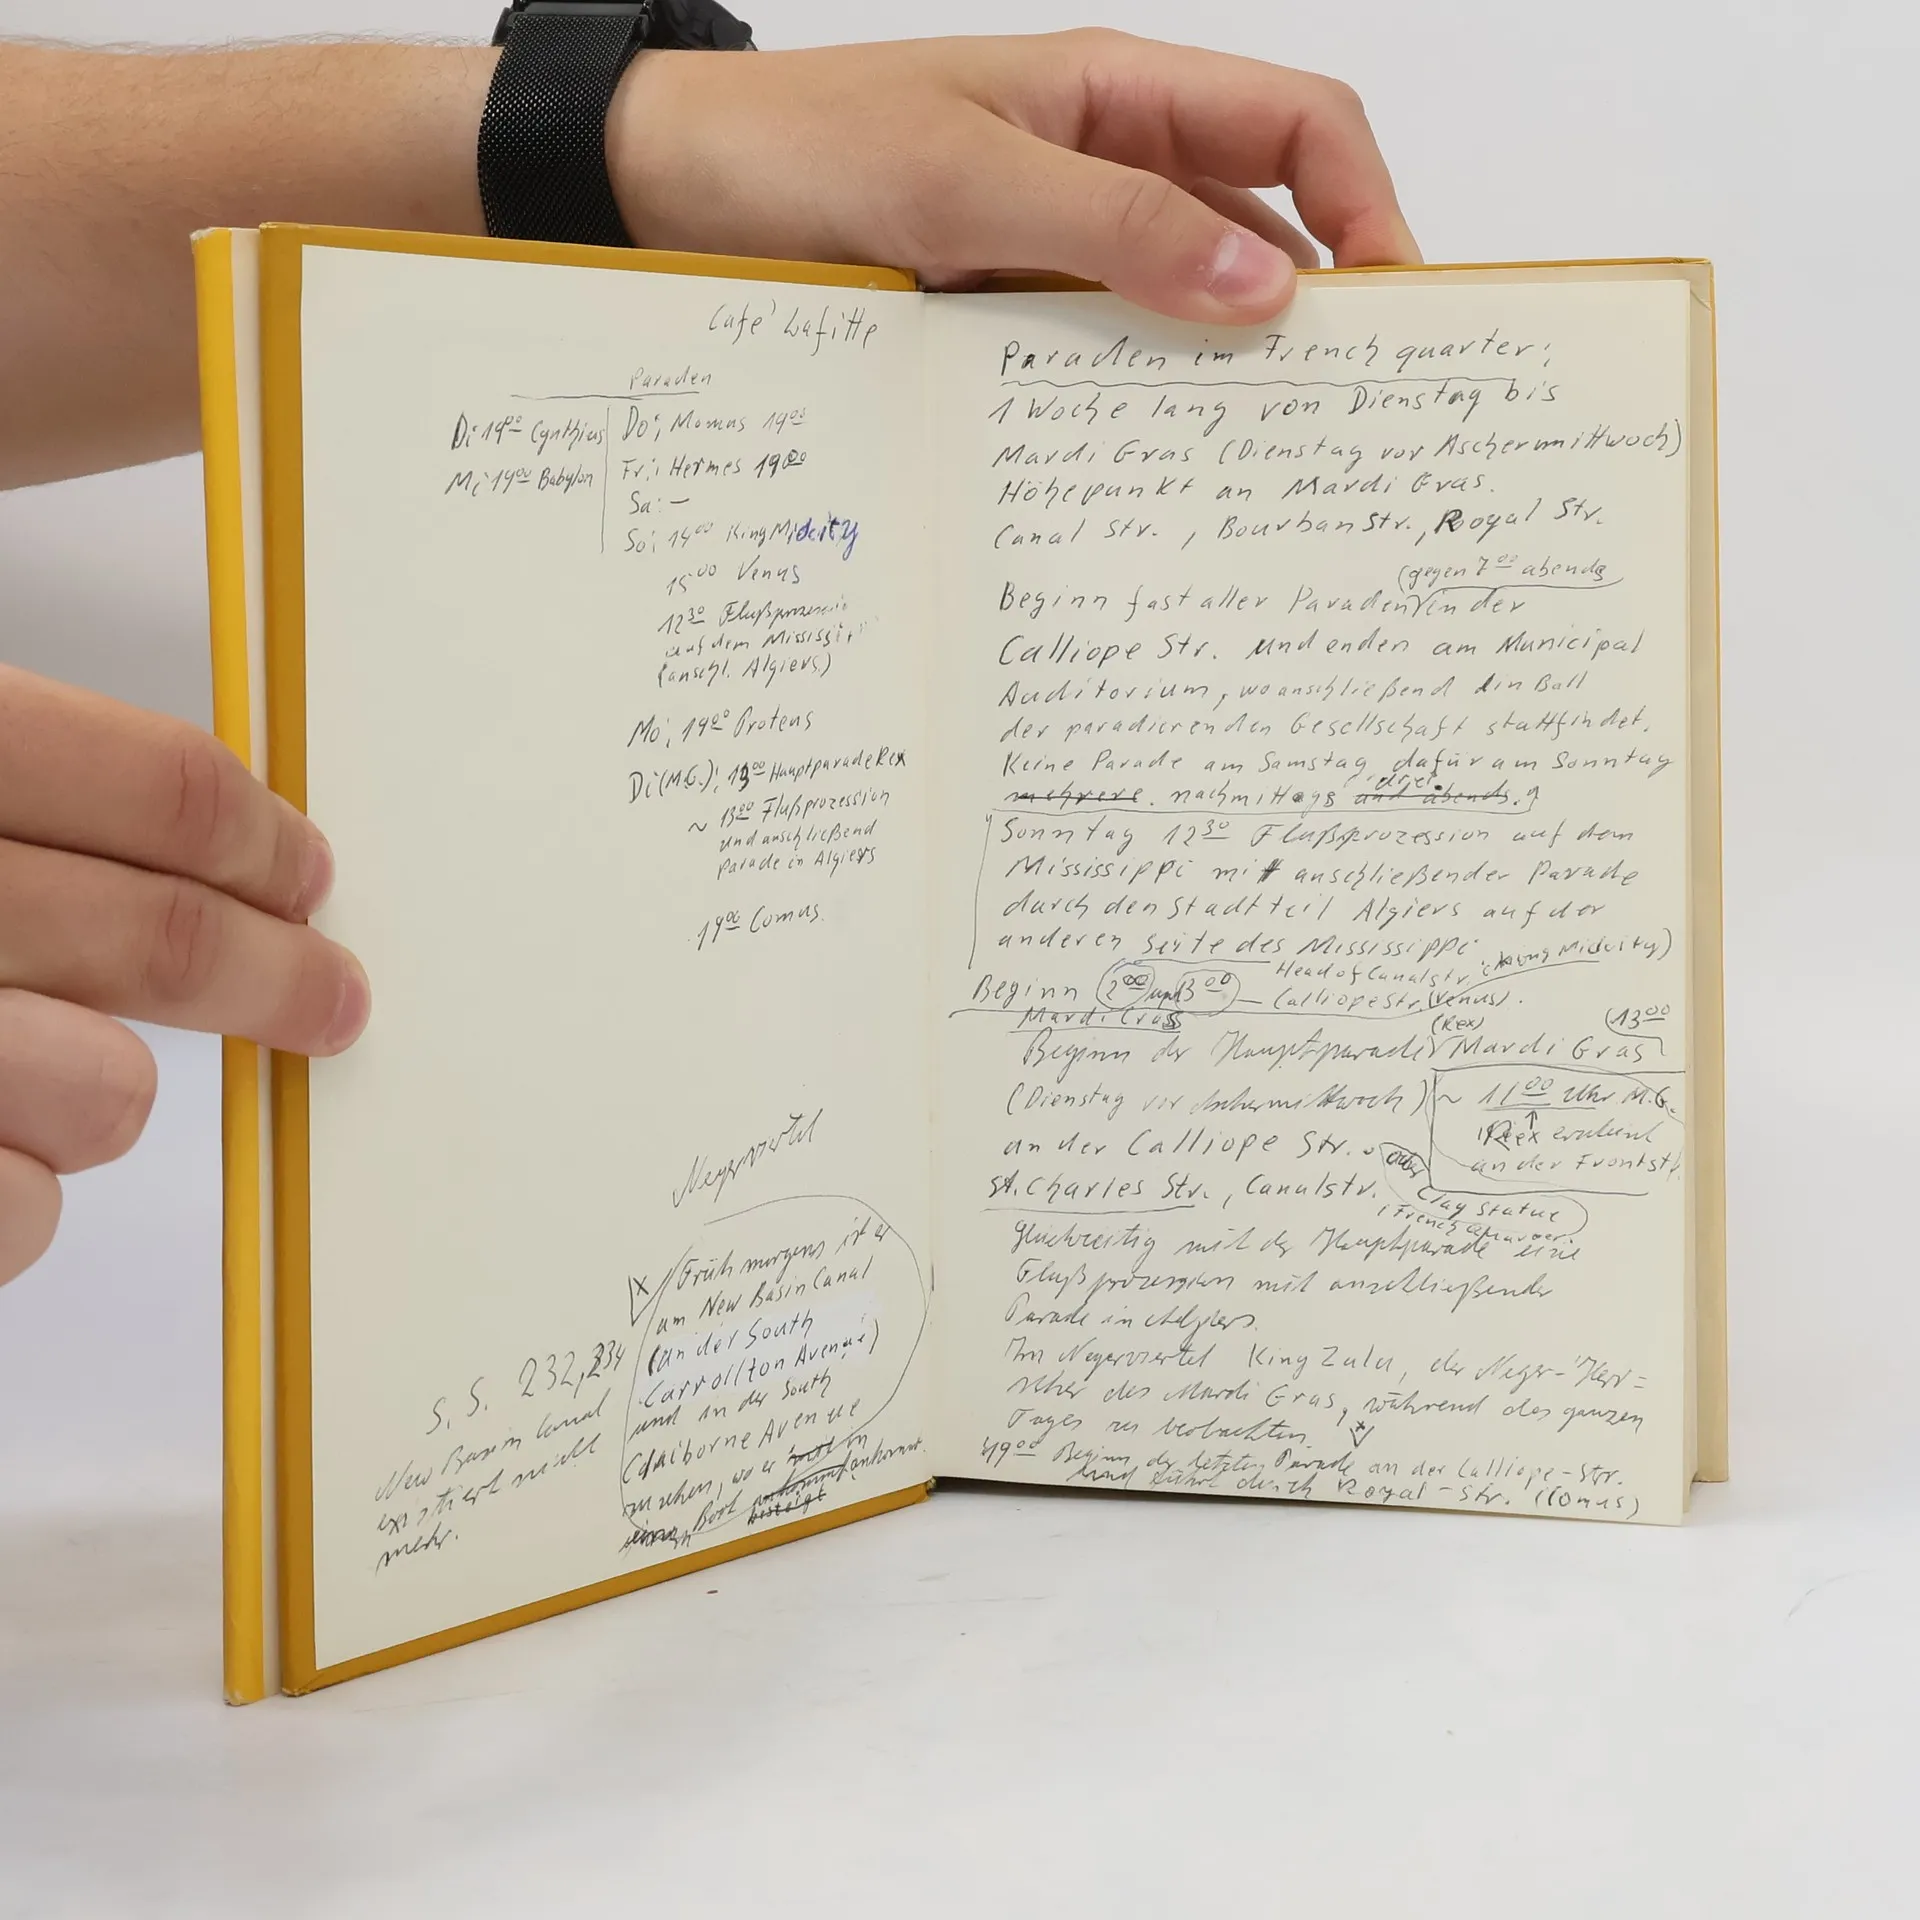 Café Lafitte
Paraden
Di 1900 Cynthius
Mi 1900 Babylon
Do: Momus 1900
Fr: Hermes 1900
Sa: —
So: 1400 King Midcity
1500 Venus
1230 Flußprozession
auf dem Mississippi
(anschl. Algiers)
Mo: 1900 Proteus
Di (M.G.): 1300 Hauptparade Rex
~ 1300 Flußprozession
und anschließend
Parade in Algiers
1900 Comus.
Negerviertel
Früh morgens ist er
am New Basin Canal
(an der South
Carrollton Avenue)
und in der South
Claiborne Avenue
zu sehen, wo er in
Boot ankommt.
besteigt
S. S. 232, 234
New Basin Canal
existiert nicht
mehr.
Paraden im French quarter:
1 Woche lang von Dienstag bis
Mardi Gras (Dienstag vor Aschermittwoch)
Höhepunkt an Mardi Gras.
Canal Str., Bourbon Str., Royal Str.
(gegen 7 00 abends
Beginn fast aller Paraden in der
Calliope Str. und enden am Municipal
Auditorium, wo anschließend ein Ball
der paradierenden Gesellschaft stattfindet.
Keine Parade am Samstag, dafür am Sonntag
mehrere nachmittags und abends.
Sonntag 1230 Flußprozession auf dem
Mississippi mit anschließender Parade
durch den Stadtteil Algiers auf der
anderen Seite des Mississippi.
Head of Canalstr. (King Midcity)
Beginn 2 00 und 3 00 — Calliope Str. (Venus).
Mardi Gras
(Rex) (13 00
Beginn der Hauptparade Mardi Gras
(Dienstag vor Aschermittwoch) ~ 11 00 Uhr M.G.
Rex
an der Frontstr.
an der Calliope Str.
St. Charles Str., Canalstr.
Clay Statue
Gleichzeitig mit der Hauptparade eine
Flußprozession mit anschließender
Parade in Algiers.
Im Negerviertel King Zulu, der Neger-Herr=
scher des Mardi Gras, während des ganzen
Tages zu beobachten.
19 00 Beginn der letzten Parade an der Calliope-Str.
und führt durch Royal-Str. (Comus)